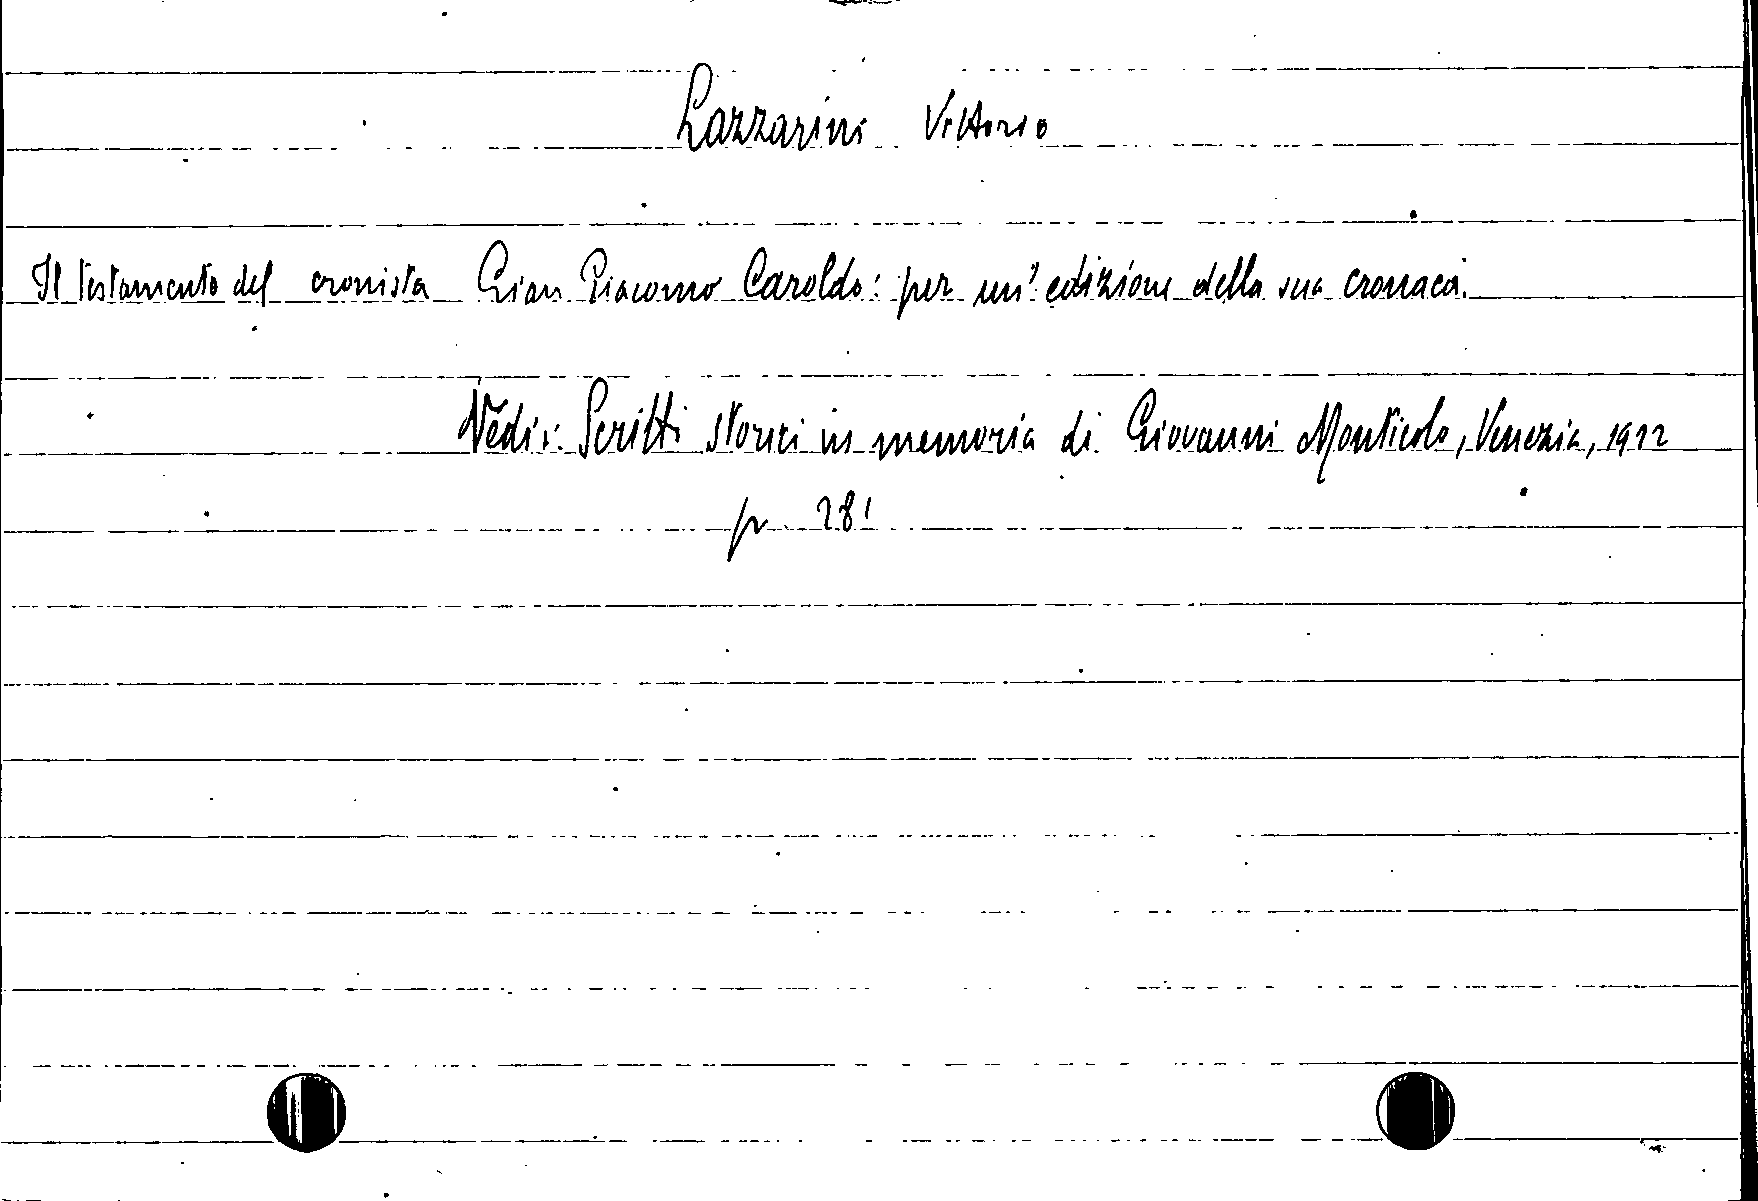 Lazzarini Vittorio
Il testamento del cronista Gian Giacomo Caroldo: per un' edizione della sua cronaca.
Vedi: Scritti storici in memoria di Giovanni Monticolo, Venezia, 1922
p. 281